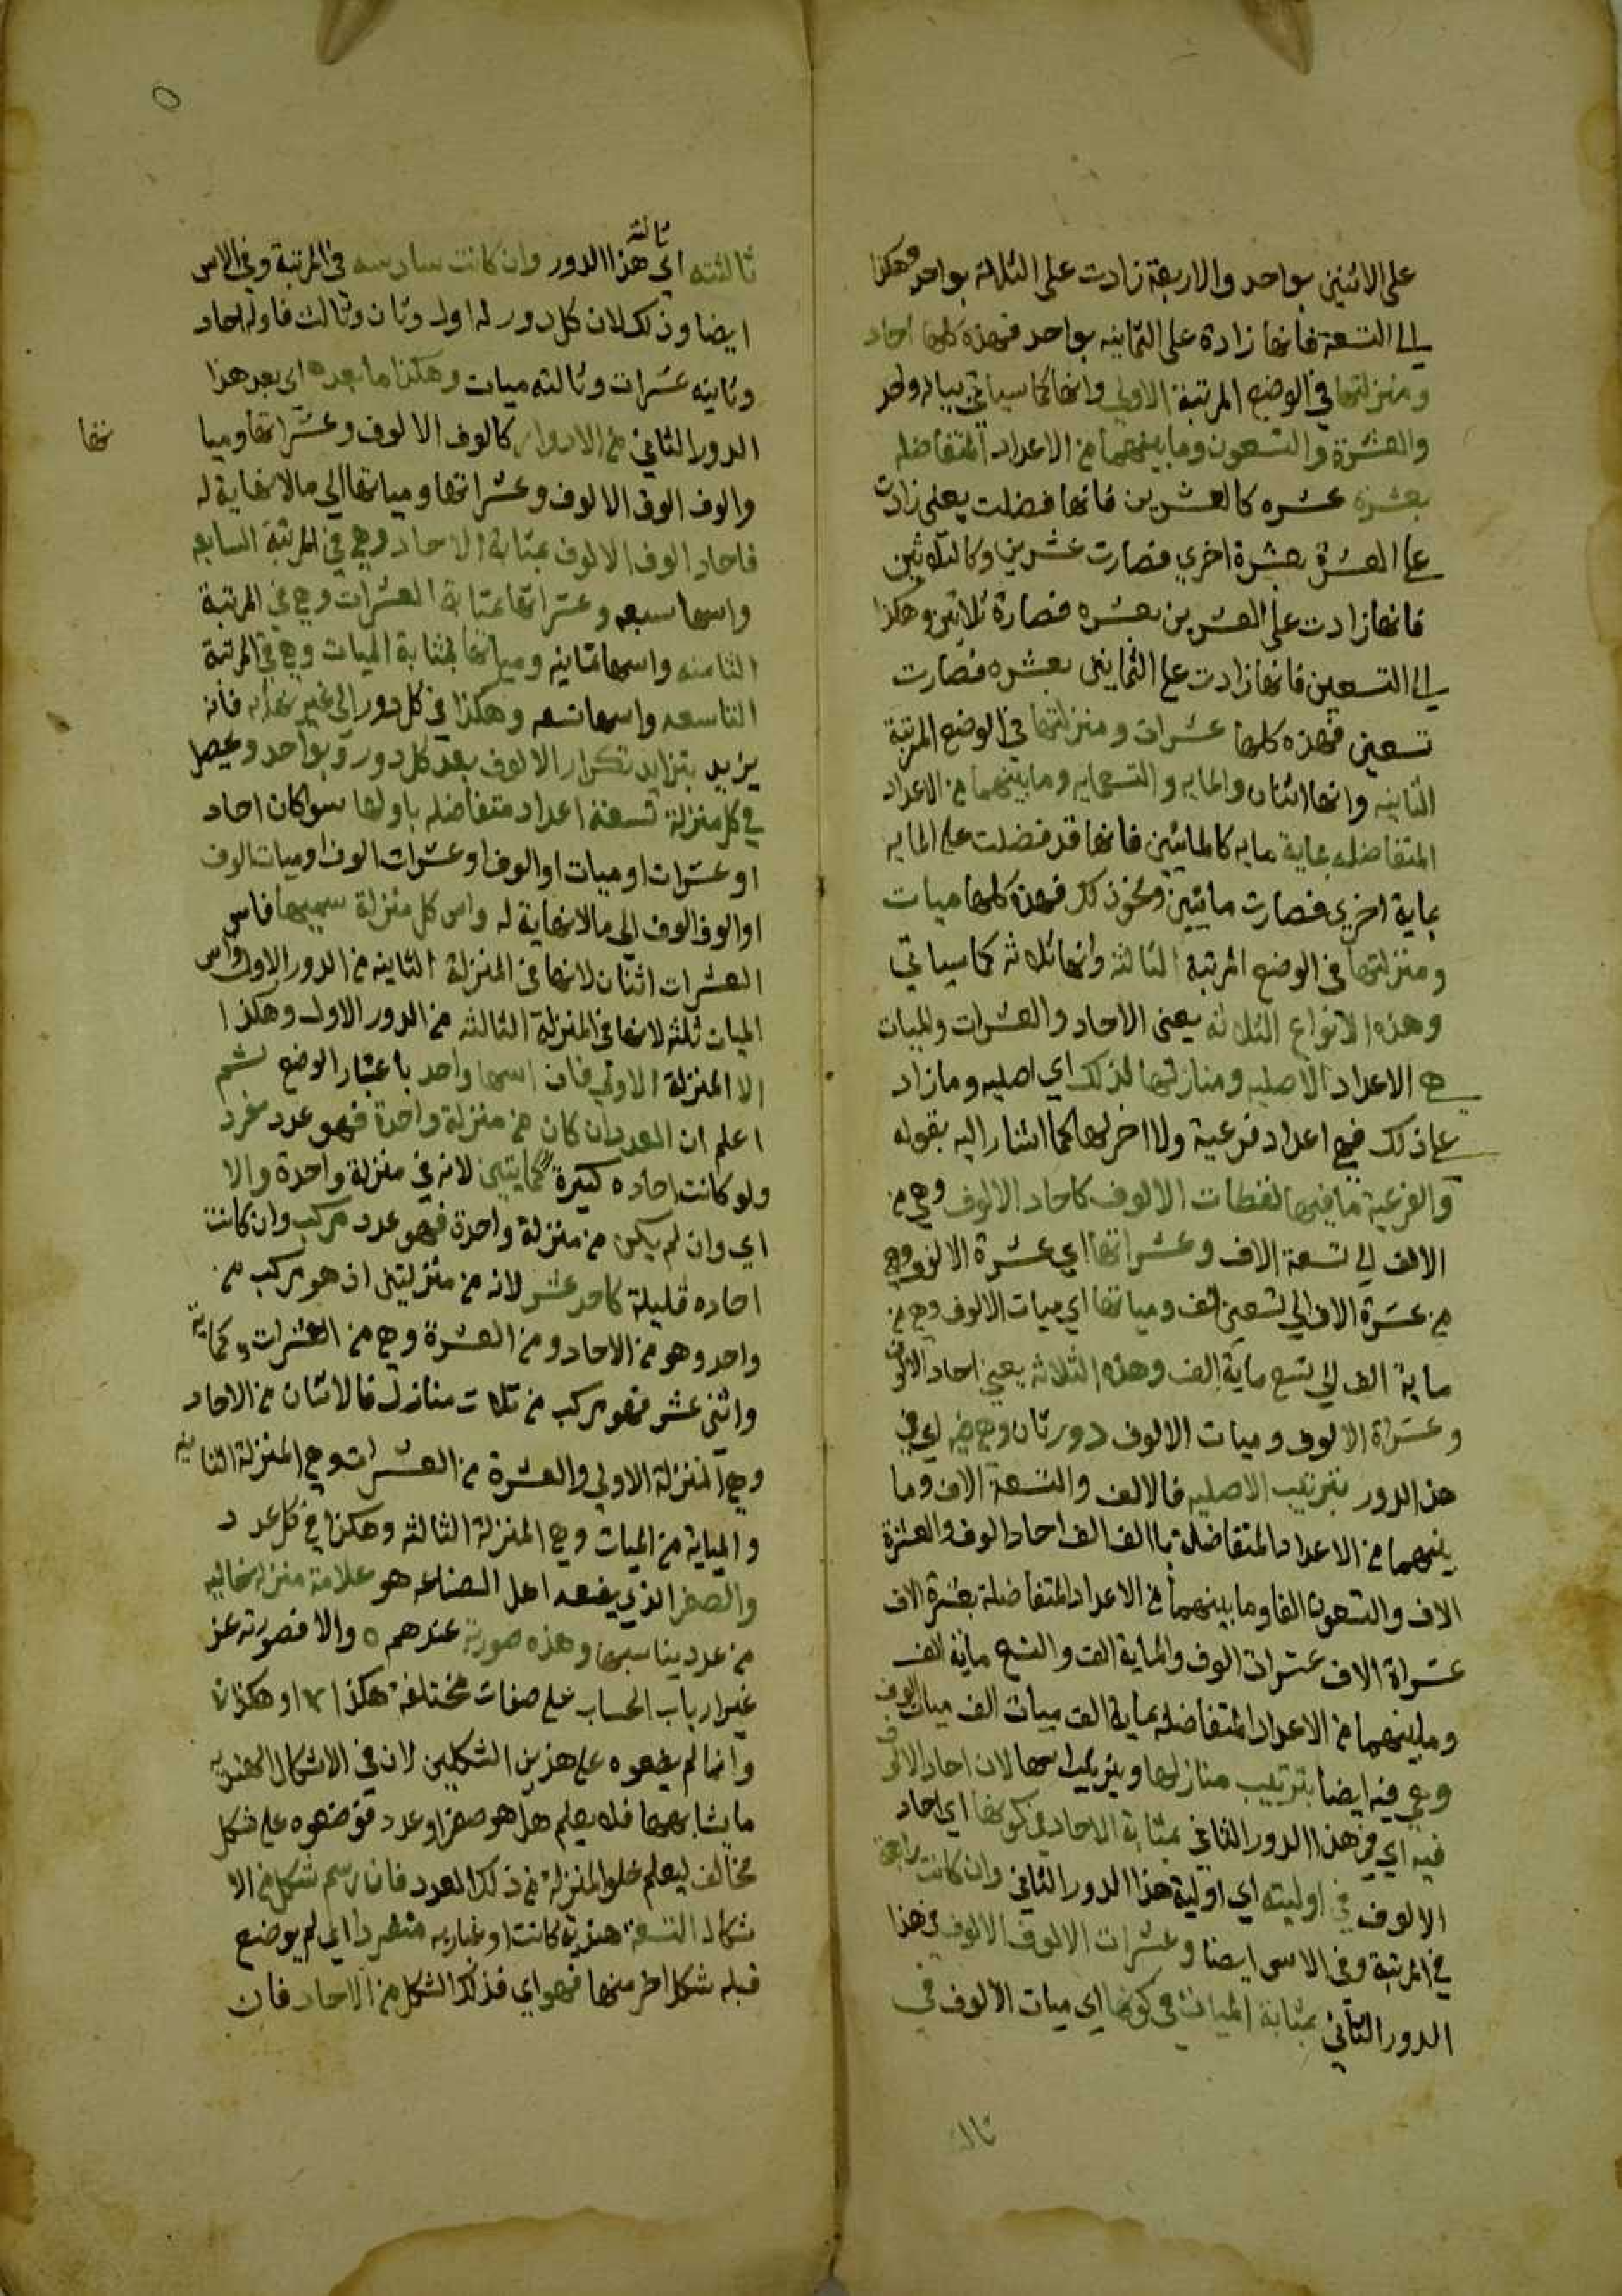 على الاثنين بواحد والاربعة زادت على الثلاثة بواحد وهكذا
الى التسعة فانها زادة على الثمانيه بواحد فهذه كلها احاد
ومنزلتها في الوضع المرتبة الاولى واسها كما سياتي بيانه واحد
والعشرة والتسعون وما بينهما من الاعداد المتفاضله
بعشرة عشره كالعشرين فانها فضلت يعني زادت
على العشرة بعشرة اخري فصارت عشرين وكالثلاثين
فانها زادت على العشرين بعشره فصارة ثلاثين وهكذا
الى التسعين فانها زادت على الثمانين بعشره فصارت
تسعين فهذه كلها عشرات ومنزلتها في الوضع المرتبة
الثانيه واسها اثنان والمايه والتسعمايه وما بينهما من الاعداد
المتفاضله بماية مايه كالمائتين فانها قد فضلت على المايه
بماية اخري فصارت مائتين ونحو ذلك فهذه كلها ميات
ومنزلتها في الوضع المرتبة الثالثة واسها ثلاثه كما سياتي
وهذه الانواع الثلاثه يعني الاحاد والعشرات والميات
هي الاعداد الاصليه ومنازلها كذلك اي اصليه وما زاد
على ذلك فهي اعداد فرعية ولا اخر لها كما اشار اليه بقوله
والفرعية ما فيها لفظات الالوف كاحاد الالوف وهي من
الالف الى تسعة الاف وعشراتها اي عشرة الالوف وهي
من عشرة الاف الى تسعين الف ومياتها اي ميات الالوف وهي من
ماية الف الى تسع ماية الف وهذه الثلاثه يعني احاد الالوف
وعشراة الالوف وميات الالوف دور ثان وهي فيه اي في
هذا الدور بترتيب الاصليه فالالف والتسعة الاف وما
بينهما من الاعداد المتفاضلة باالف الف احاد الوف والعشرة
الاف والتسعون الفا وما بينهما من الاعداد المتفاضلة بعشرة الاف
عشراة الاف عشرات الوف والماية الف والتسع ماية الف
وما بينهما من الاعداد المتفاضله بماية الف ميات الف ميات الوف
وهي فيه ايضا بترتيب منازلها وبترتيب اسها لان احاد الالوف
فيه اي في هذا الدور الثاني بمثابة الاحاد في كونها اي احاد
الالوف في اوليته اي اولية هذا الدور الثاني وان كانت رابعة
في المرتبة وفي الاس ايضا وعشرات الالوف الالوف في هذا
الدور الثاني بمثابة الميات في كونها اي ميات الالوف في
ثالثته
ثالثة
ثالثته اي هذا الدور وان كانت سادسه في المرتبة وفي الاس
ايضا وذلك لان كل دور له اول وثان وثالث فاوله احاد
وثانيه عشرات وثالثه ميات وهكذا ما بعده اي بعد هذا
الدور الثاني من الادوار كالوف الالوف وعشراتها ومياتها
والوف الوف الالوف وعشراتها ومياتها الى ما لا نهاية له
فاحاد الوف الالوف بمثابة الاحاد وهي في المرتبة السابعه
واسها سبعه وعشراتها بمثابة العشرات وهي في المرتبة
الثامنه واسها ثمانيه ومياتها بمثابة الميات وهي في المرتبة
التاسعه واسها تسعه وهكذا في كل دور الى غير نهاية فانه
يزيد بتزايد تكرار الالوف بعد كل دور بواحد ويحصل
في كل منزلة تسعة اعداد متفاضله باولها سوا كان احاد
او عشرات او ميات او الوف او عشرات الوف او ميات الوف
او الوف الوف الى ما لا نهاية له واس كل منزلة سميها فاس
العشرات اثنان لانها في المنزلة الثانيه من الدور الاول واس
الميات ثلثه لانها في المنزلة الثالثه من الدور الاول وهكذا
الا المنزلة الاولي فان اسها واحد باعتبار الوضع ثم
اعلم ان العدد ان كان من منزلة واحدة فهو عدد مفرد
ولو كانت احاده كثيرة كمايتين لانه في منزلة واحدة والا
اي وان لم يكن من منزلة واحدة فهو عدد مركب وان كانت
احاده قليلة كاحد عشر لانه من منزلتين اذ هو مركب من
واحد وهو من الاحاد ومن العشرة وهي من العشرات وكماية
واثني عشر فهو مركب من ثلاث منازل فالاثنان من الاحاد
وهي المنزلة الاولي والعشرة من العشرات وهي المنزلة الثانيه
والماية من الميات وهي المنزلة الثالثه وهكذا في كل عدد
والصفر الذي يضعه اهل الصناعه هو علامة منزلة خاليه
من عدد يناسبها وهذه صورته عندهم ٥ والا فصورته عند
غير ارباب الحساب على صفات مختلفة هكذا او هكذا
وانما لم يضعوه على هذين الشكلين لان في الاشكال الهنديه
ما يشابهها فلا يعلم هل هو صفر او عدد فوضعوه على شكل
مخالف ليعلم خلو المنزلة من ذلك العدد فان رسم شكل من الا
شكال التسعة هندية كانت او غباريه منفردا اي لم يوضع
قبله شكل اخر منها فهو اي فذلك الشكل من الاحاد فان